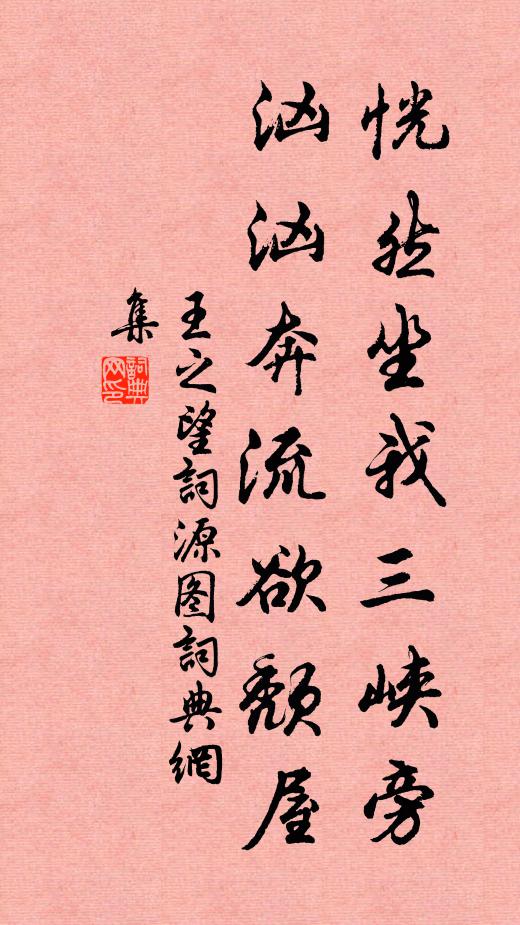 恍然坐我三峡旁
汹汹奔流欲颓屋
王之望詞源图詞典網
集
詞典
网印